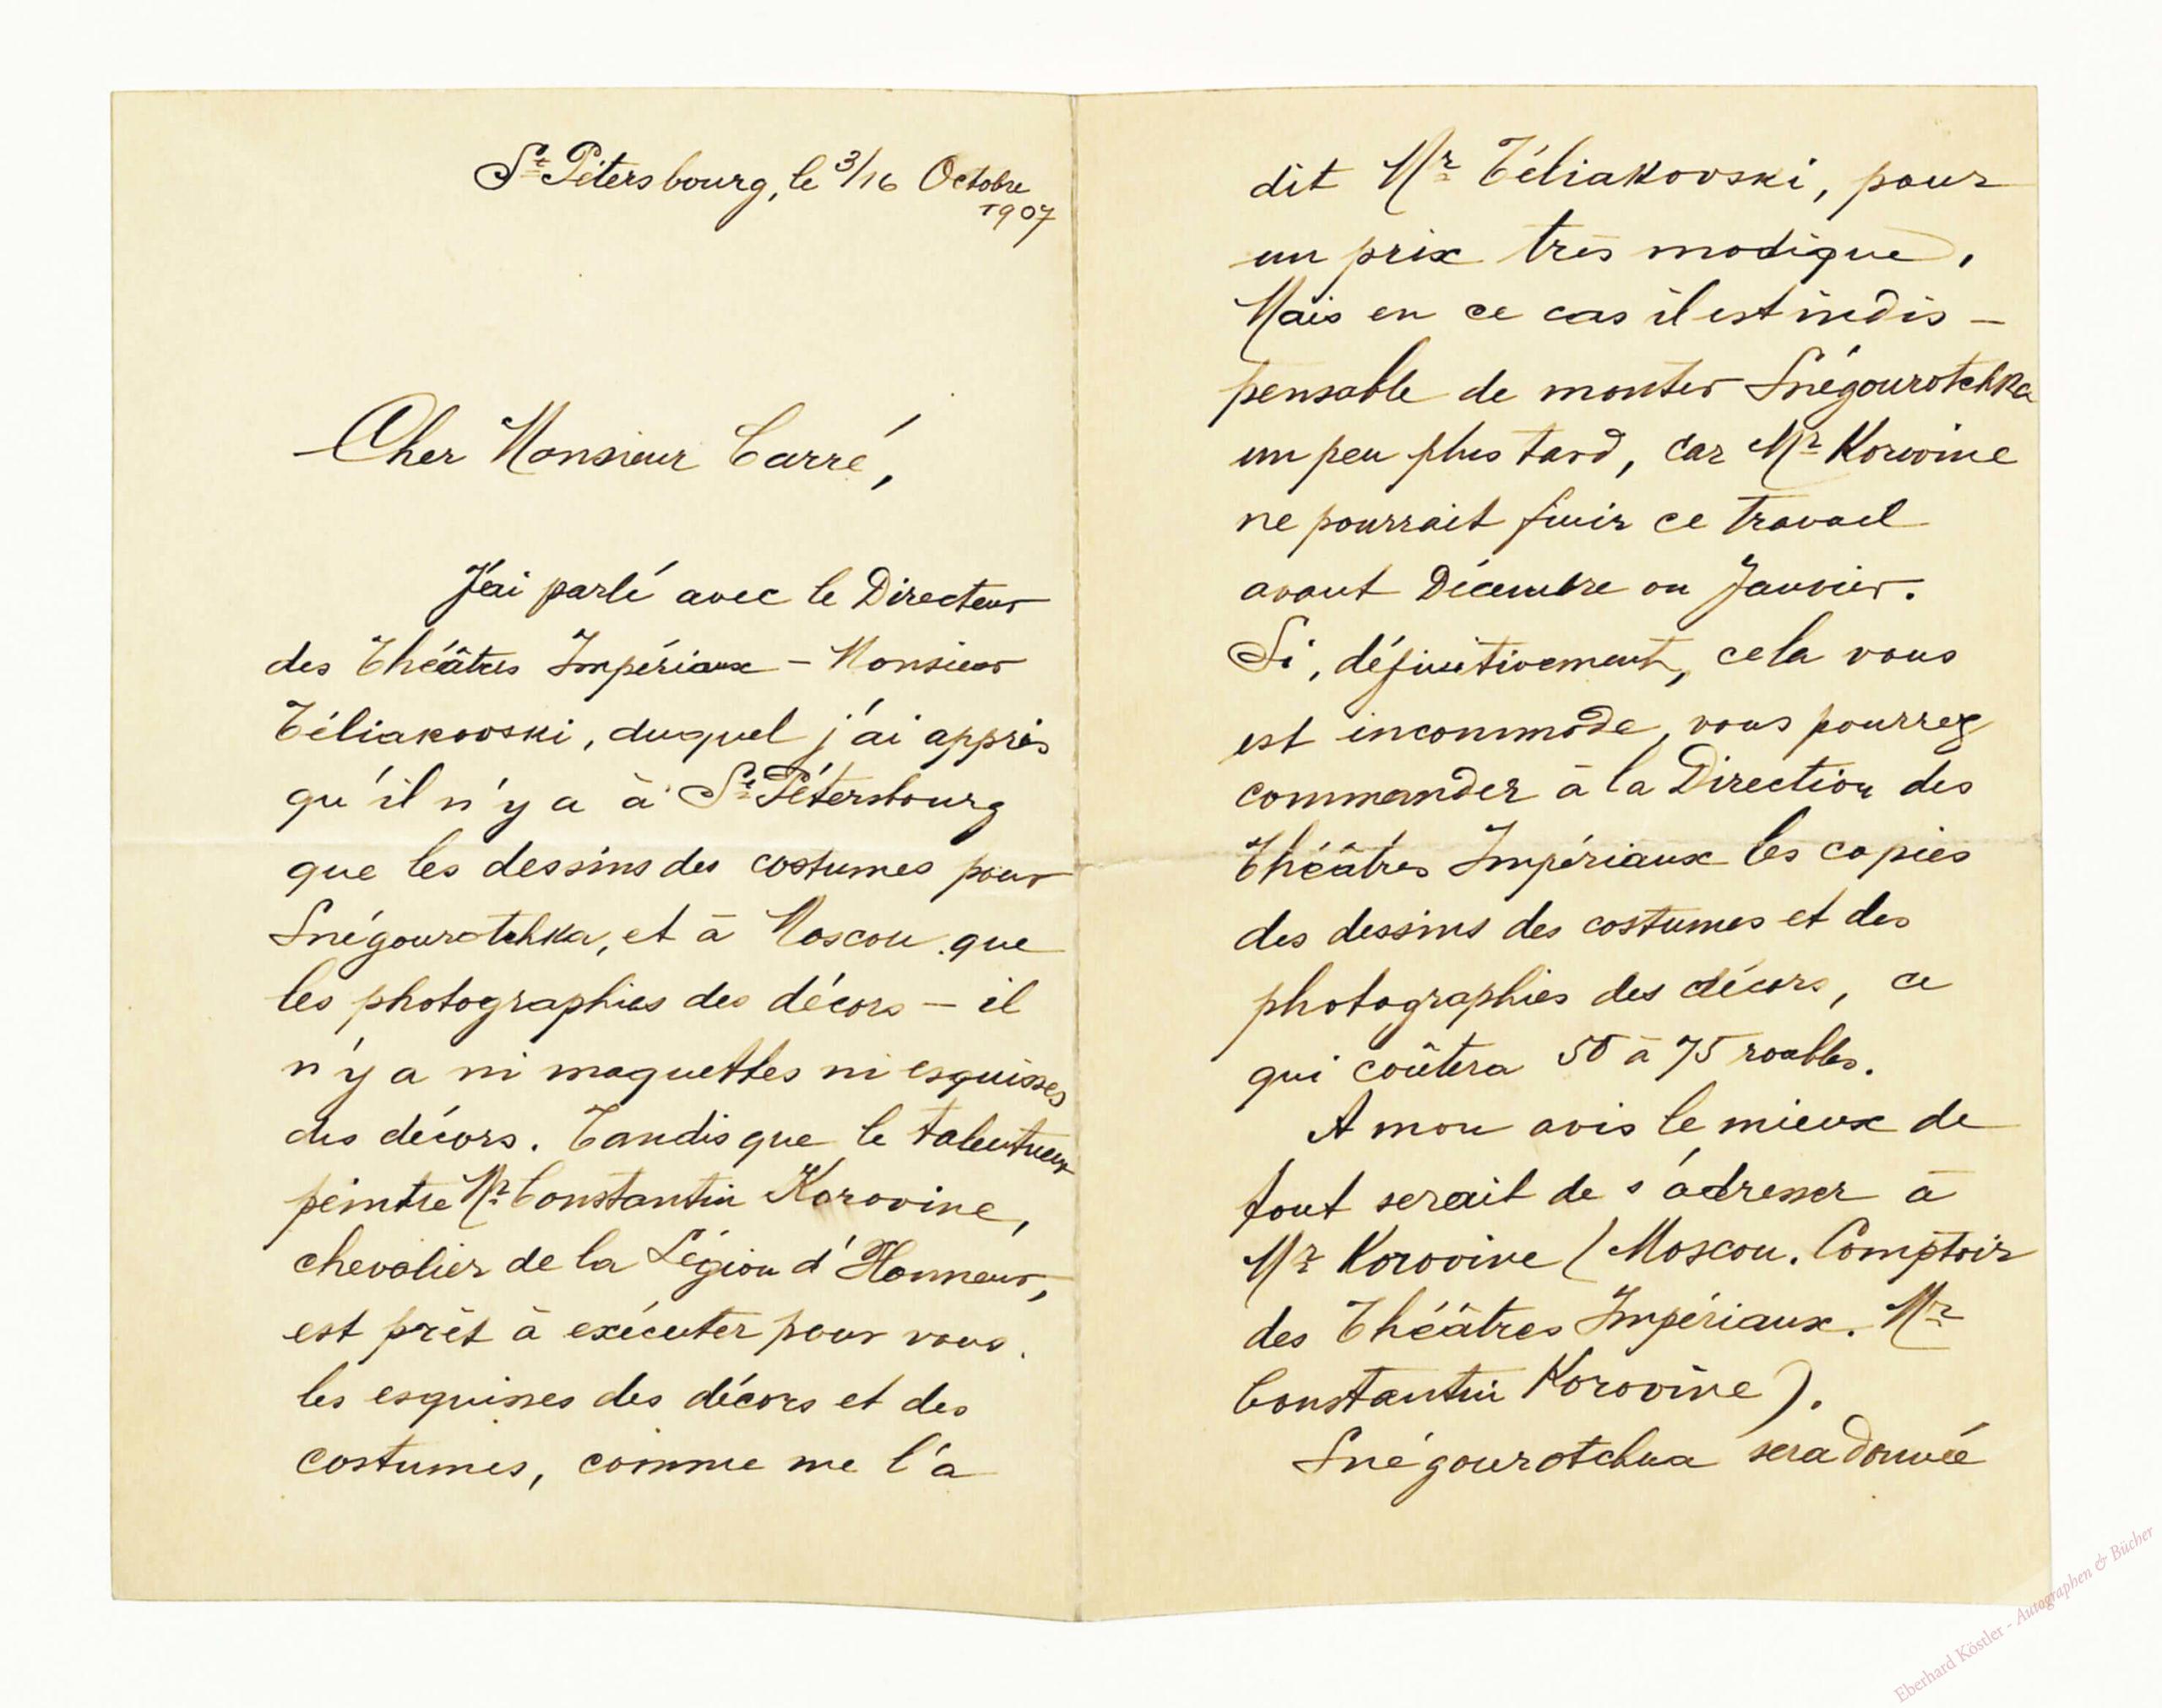 St Pétersbourg, le 3/16 Octobre
1907
Cher Monsieur Carré,
J'ai parlé avec le Directeur
des Théâtres Impériaux – Monsieur
Téliakovski, duquel j'ai appris
qu'il n'y a à St Pétersbourg
que les dessins des costumes pour
Snégourotchka, et à Moscou que
les photographies des décors – il
n'y a ni maquettes ni esquisses
des décors. Tandis que le talentueux
peintre Mr Constantin Korovine,
chevalier de la Légion d'Honneur,
est prêt à exécuter pour vous
les esquisses des décors et des
costumes, comme me l'a
dit Mr Téliakovski, pour
un prix très modique.
Mais en ce cas il est indis-
pensable de monter Snégourotchka
un peu plus tard, car Mr Korovine
ne pourrait finir ce travail
avant Décembre ou Janvier.
Si, définitivement, cela vous
est incommode, vous pourrez
commander à la Direction des
Théâtres Impériaux les copies
des dessins des costumes et des
photographies des décors, ce
qui coûtera 50 à 75 roubles.
A mon avis le mieux de
tout serait de s'adresser à
Mr Korovine (Moscou. Comptoir
des Théâtres Impériaux. Mr
Constantin Korovine).
Snégourotchka sera donnée
Eberhard Köstler - Autographen & Bücher